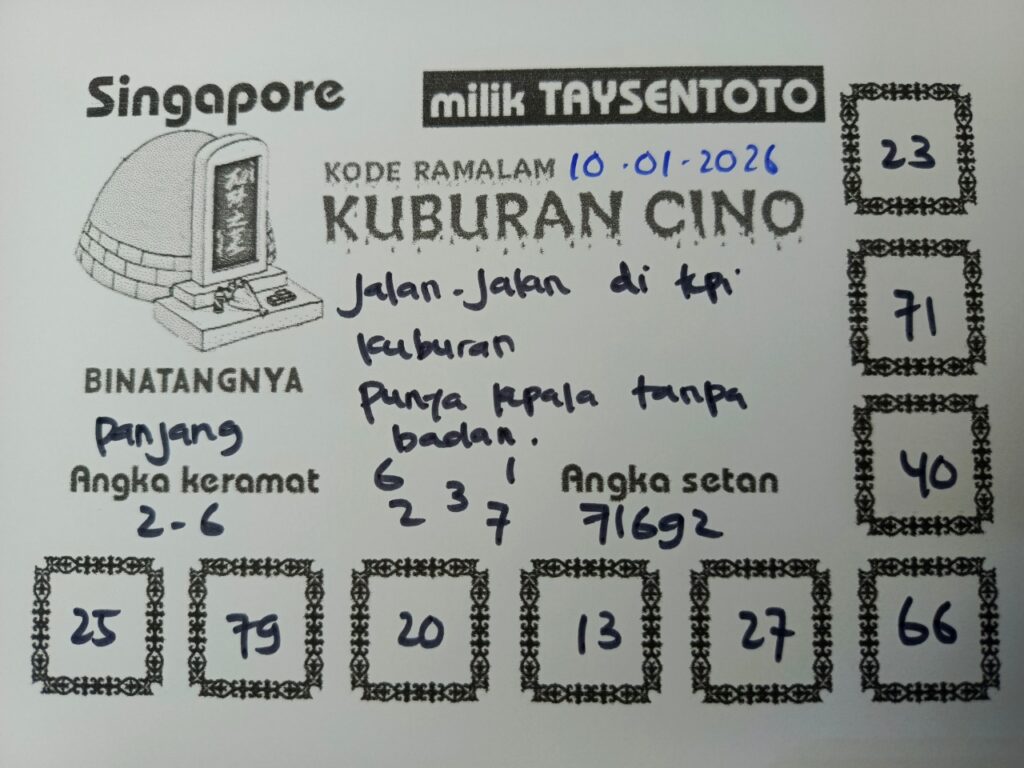 Singapore
milik TAYSENTOTO
KODE RAMALAM 10-01-2026
KUBURAN CINO
Jalan-Jalan di tepi
kuburan
punya kepala tanpa
badan.
BINATANGNYA
panjang
Angka keramat
2-6
6 1
3
2 7
Angka setan
71692
23
71
40
25 79 20 13 27 66